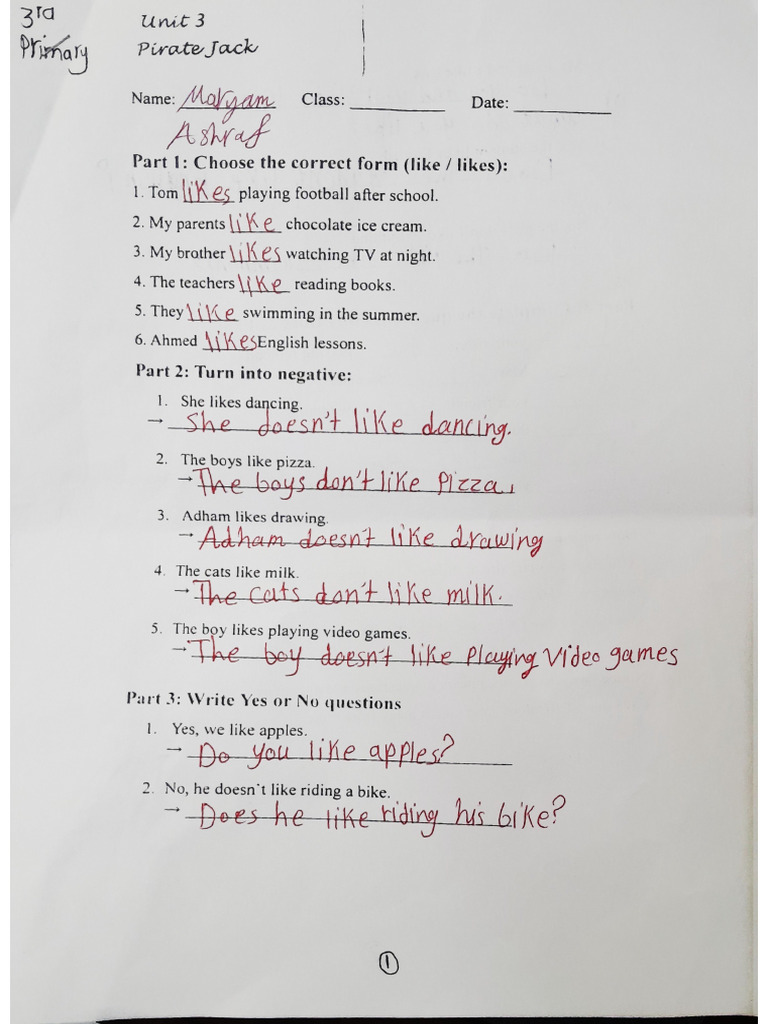 3rd
Primary
Unit 3
Pirate Jack
Name: Maryam Class: __________ Date: __________
Ashraf
Part 1: Choose the correct form (like / likes):
1. Tom likes playing football after school.
2. My parents like chocolate ice cream.
3. My brother likes watching TV at night.
4. The teachers like reading books.
5. They like swimming in the summer.
6. Ahmed likes English lessons.
Part 2: Turn into negative:
1. She likes dancing.
→ She doesn't like dancing.
2. The boys like pizza.
→ The boys don't like Pizza.
3. Adham likes drawing.
→ Adham doesn't like drawing
4. The cats like milk.
→ The cats don't like milk.
5. The boy likes playing video games.
→ The boy doesn't like Playing Video games
Part 3: Write Yes or No questions
1. Yes, we like apples.
→ Do you like apples?
2. No, he doesn't like riding a bike.
→ Does he like riding his bike?
1